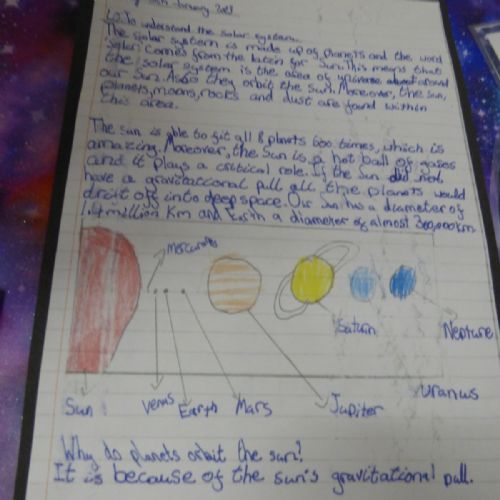 January 2021
LO: To understand the solar system.
The solar system is made up of planets and the word
Solar comes from the latin for Sun. This means that
the solar system is the area of universe around
our Sun. Also they orbit the Sun. Moreover, the sun,
planets, moons, rocks and dust are found within
this area.
The Sun is able to fit all 8 planets 600 times, which is
amazing. Moreover, the Sun is a hot ball of gases
and it plays a critical role. If the Sun did not
have a gravitational pull all the planets would
drift off into deep space. Our Sun has a diameter of
1.4 million km and Earth a diameter of almost km
Mercury
Saturn
Neptune
Uranus
Sun
Venus
Earth
Mars
Jupiter
Why do planets orbit the sun?
It is because of the sun's gravitational pull.